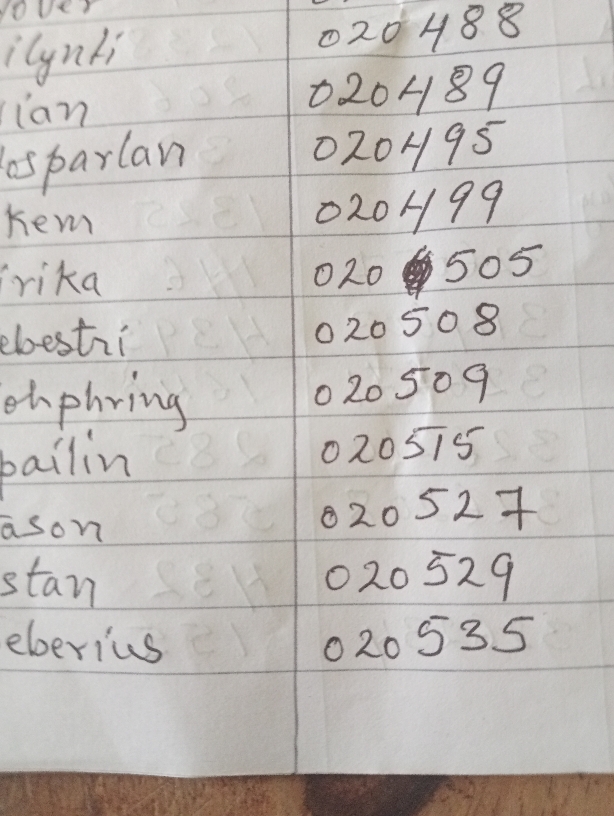 over
ilynti 020488
ian 020489
osparlan 020495
kem 020499
irika 020 505
ebestri 020508
ohphring 020509
pailin 020515
ason 020527
stan 020529
eberius 020535